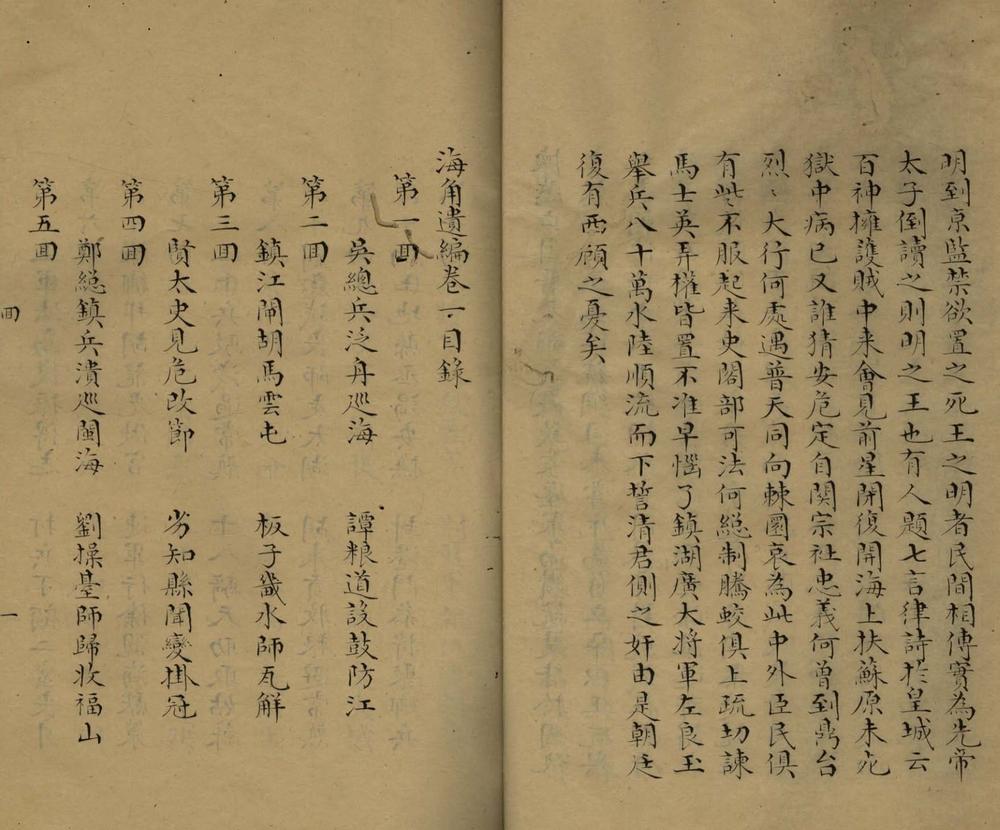 明到京監禁欲置之死王之明者民間相傳實為先帝
太子倒讀之則明之王也有人題七言律詩於皇城云
百神擁護賊中来會見前星閉復開海上扶蘇原未死
獄中病已又誰猜安危定自関宗社忠義何曾到鼎台
烈〻大行何處遇普天同向棘圜哀為此中外臣民俱
有些不服起来史閣部可法何緫制騰蛟俱上疏切諫
馬士英弄權皆置不准早惱了鎮湖廣大将軍左良玉
舉兵八十萬水陸順流而下誓清君側之奸由是朝廷
復有西顧之憂矣
海角遺編卷一目錄
第一囬
吳總兵泛舟巡海 譚粮道設鼓防江
第二囬
鎮江閙胡馬雲屯 板子畿水師瓦解
第三囬
賢太史見危改節 劣知縣聞變掛冠
第四囬
鄭緫鎮兵潰巡閩海 劉操臺師歸收福山
第五囬
囬 一